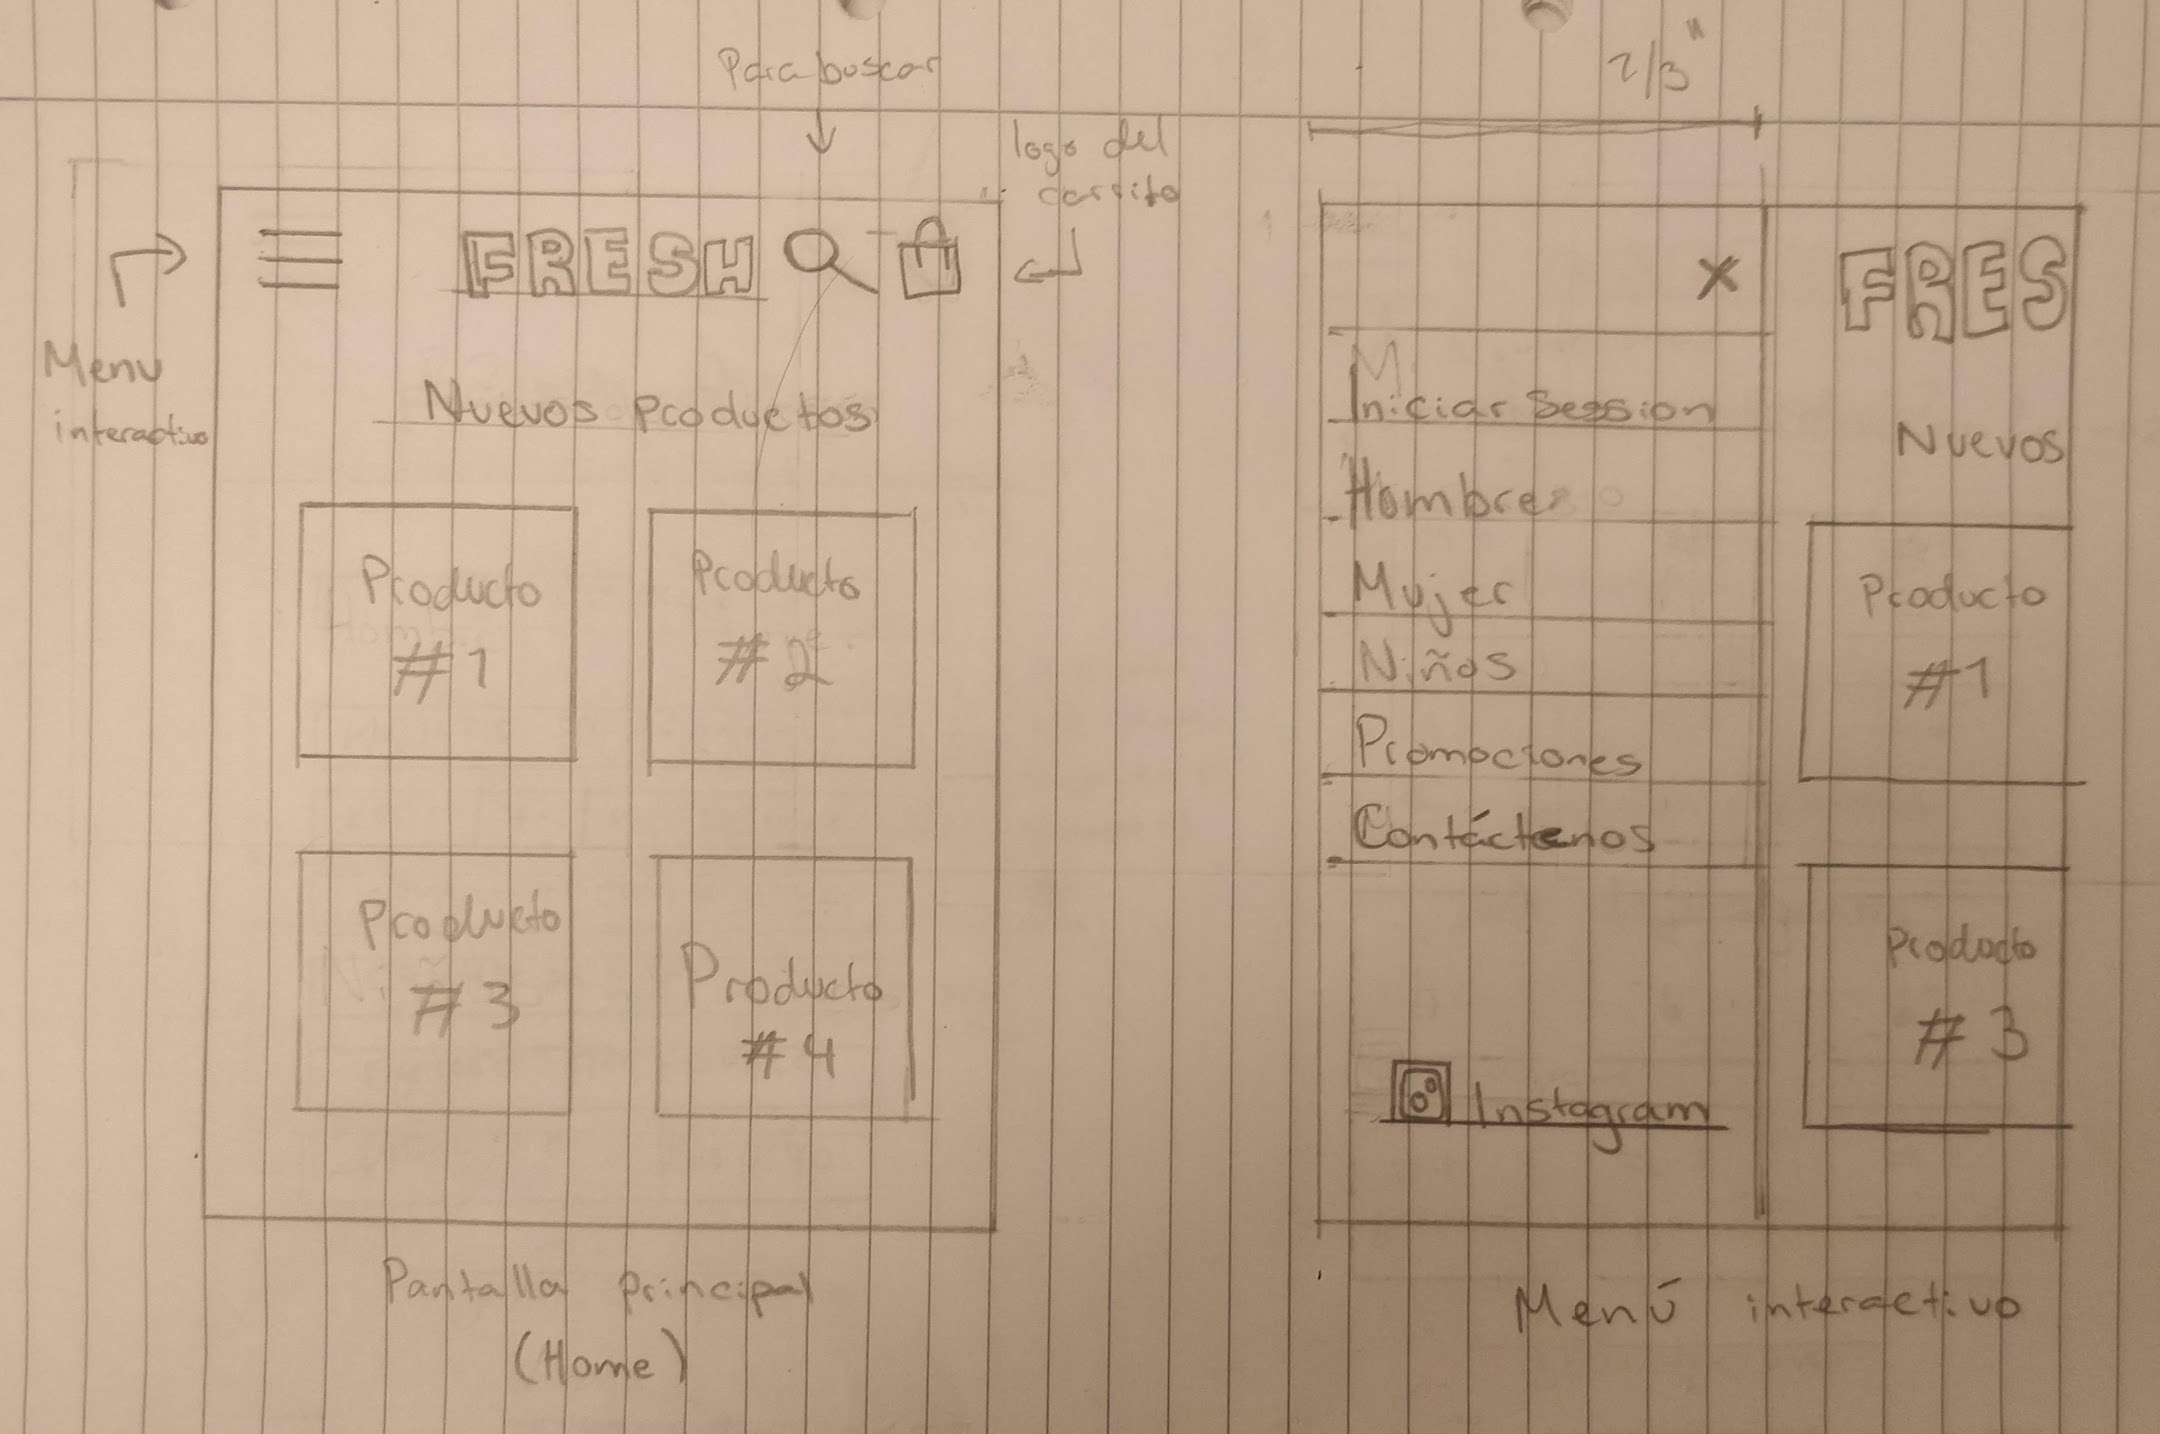 Para buscar
logo del
carrito
Menu
interactivo
FRESH
Nuevos Productos
Producto
#1
Producto
#2
Producto
#3
Producto
#4
Pantalla principal
(Home)
2/3"
X
Iniciar Session
Hombre
Mujer
Niños
Promociones
Contáctenos
Instagram
FRES
Nuevos
Producto
#1
Producto
#3
Menú interactivo